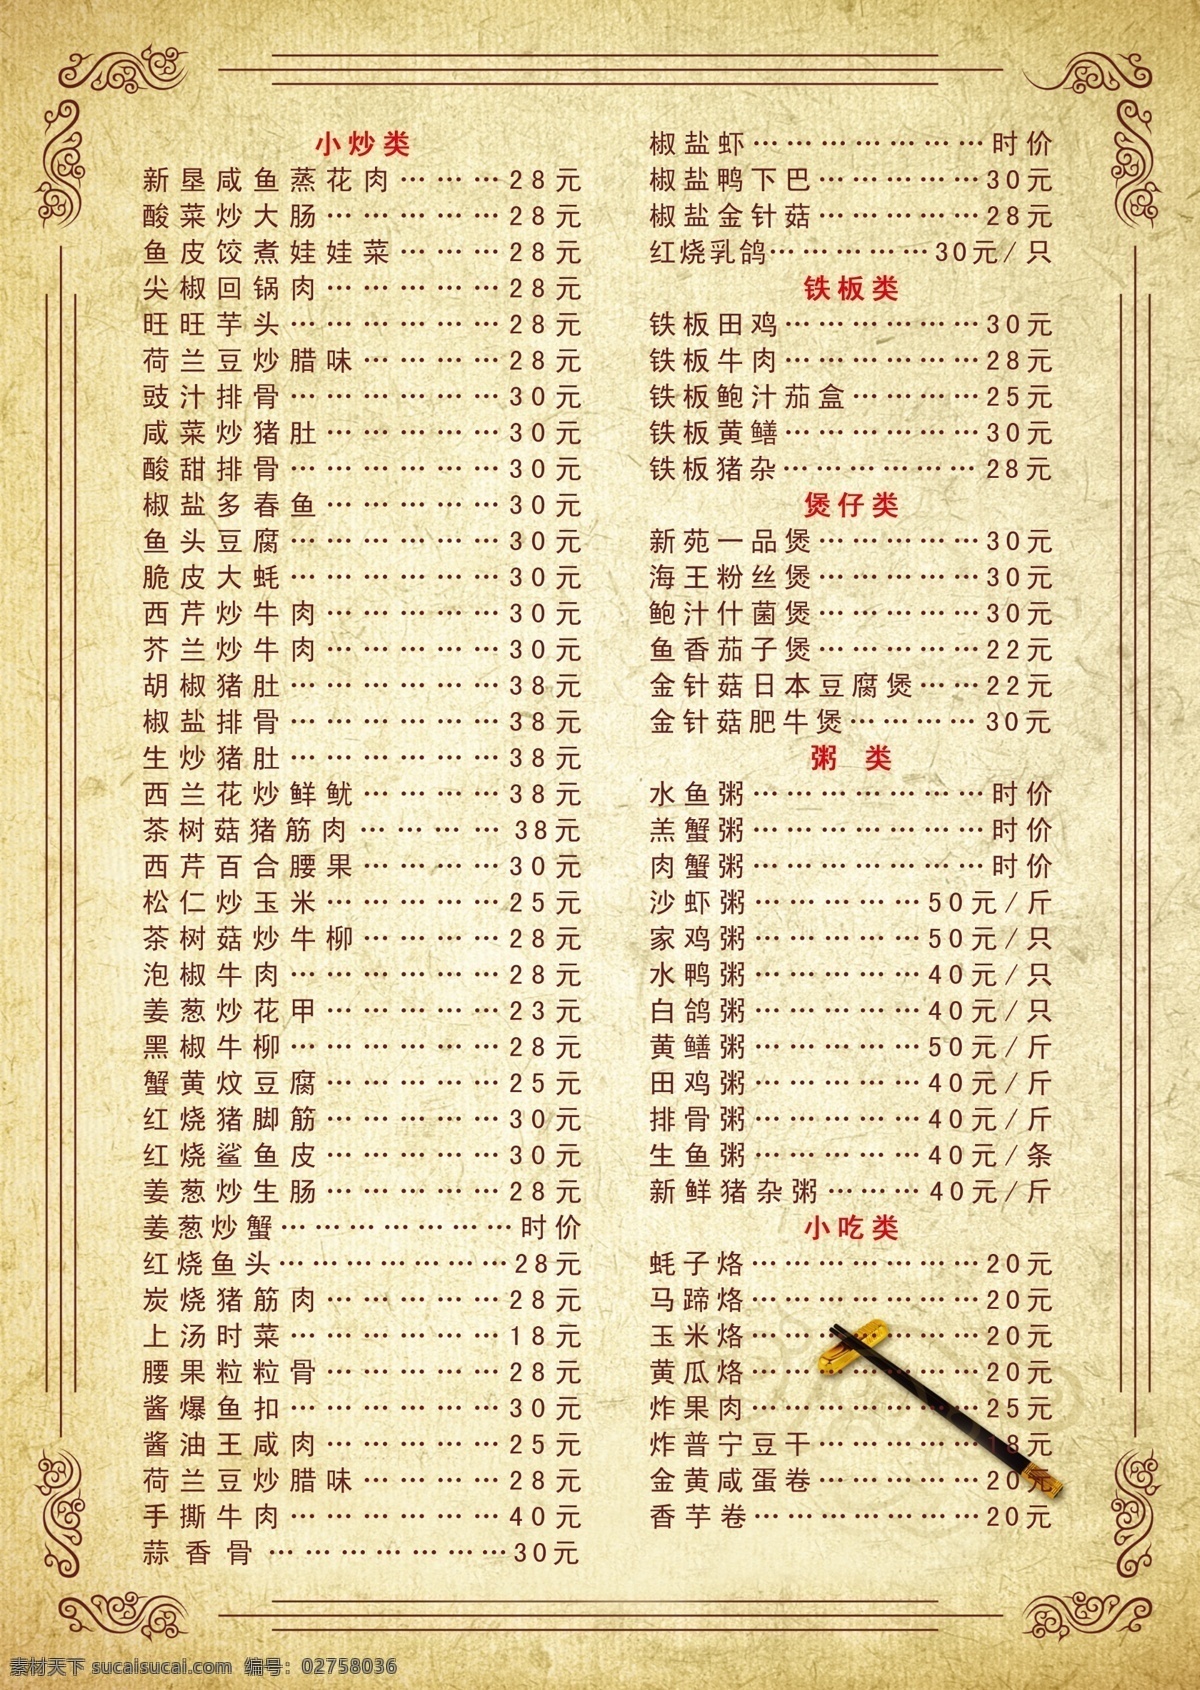 小炒类
新垦咸鱼蒸花肉………28元
酸菜炒大肠……………28元
鱼皮饺煮娃娃菜………28元
尖椒回锅肉……………28元
旺旺芋头………………28元
荷兰豆炒腊味…………28元
豉汁排骨………………30元
咸菜炒猪肚……………30元
酸甜排骨………………30元
椒盐多春鱼……………30元
鱼头豆腐………………30元
脆皮大蚝………………30元
西芹炒牛肉……………30元
芥兰炒牛肉……………30元
胡椒猪肚………………38元
椒盐排骨………………38元
生炒猪肚………………38元
西兰花炒鲜鱿…………38元
茶树菇猪筋肉…………38元
西芹百合腰果…………30元
松仁炒玉米……………25元
茶树菇炒牛柳…………28元
泡椒牛肉………………28元
姜葱炒花甲……………23元
黑椒牛柳………………28元
蟹黄炆豆腐……………25元
红烧猪脚筋……………30元
红烧鲨鱼皮……………30元
姜葱炒生肠……………28元
姜葱炒蟹…………………时价
红烧鱼头…………………28元
炭烧猪筋肉……………28元
上汤时菜………………18元
腰果粒粒骨……………28元
酱爆鱼扣………………30元
酱油王咸肉……………25元
荷兰豆炒腊味…………28元
手撕牛肉………………40元
蒜香骨…………………30元
椒盐虾…………………时价
椒盐鸭下巴……………30元
椒盐金针菇……………28元
红烧乳鸽……………30元/只
铁板类
铁板田鸡………………30元
铁板牛肉………………28元
铁板鲍汁茄盒…………25元
铁板黄鳝………………30元
铁板猪杂………………28元
煲仔类
新苑一品煲……………30元
海王粉丝煲……………30元
鲍汁什菌煲……………30元
鱼香茄子煲……………22元
金针菇日本豆腐煲……22元
金针菇肥牛煲…………30元
粥 类
水鱼粥…………………时价
羔蟹粥…………………时价
肉蟹粥…………………时价
沙虾粥……………50元/斤
家鸡粥……………50元/只
水鸭粥……………40元/只
白鸽粥……………40元/只
黄鳝粥……………50元/斤
田鸡粥……………40元/斤
排骨粥……………40元/斤
生鱼粥……………40元/条
新鲜猪杂粥………40元/斤
小吃类
蚝子烙…………………20元
马蹄烙…………………20元
玉米烙…………………20元
黄瓜烙…………………20元
炸果肉…………………25元
炸普宁豆干……………18元
金黄咸蛋卷……………20元
香芋卷…………………20元
素材天下 sucaisucai.com 编号：02758036